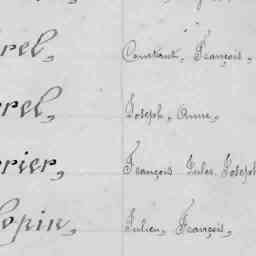 rel, Constant, François,
rel, Joseph, Anne,
rier, François Jules Joseph
opin, Julien, François,